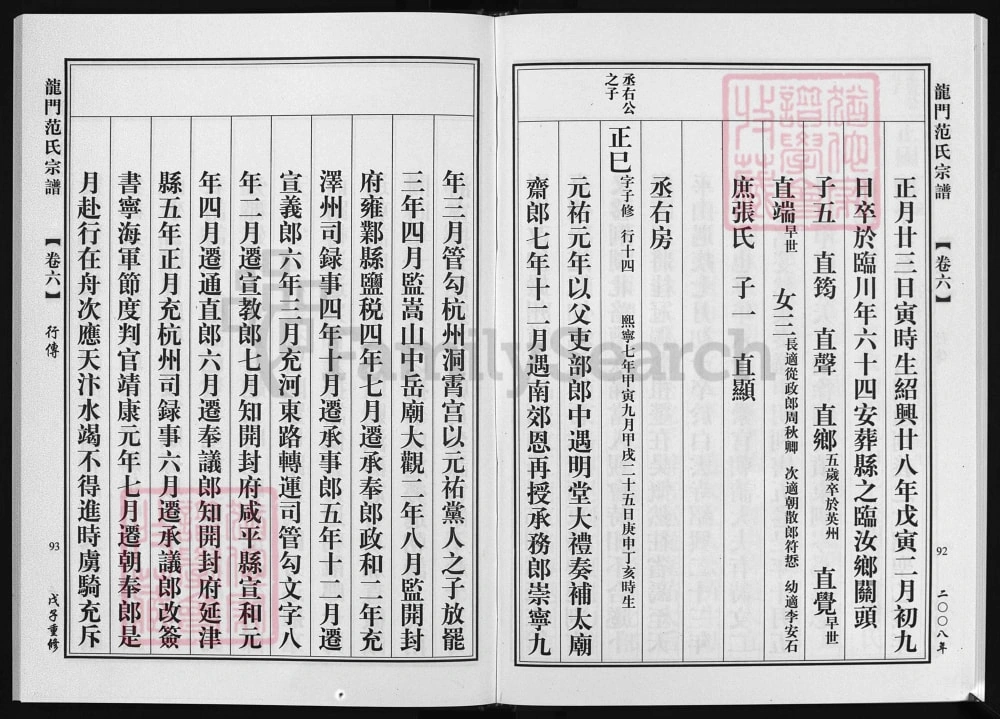 龍門范氏宗譜
【卷六】
92
二〇〇八年
正月廿三日寅時生紹興廿八年戊寅二月初九
日卒於臨川年六十四安葬縣之臨汝鄉關頭
子五 直筠 直聲 直鄉五歲卒於英州 直覺早世
直端早世 女三長適從政郎周秋卿 次適朝散郎符惁 幼適李安石
庶張氏 子一 直顯
丞右房
丞右公之子
正巳字子修 行十四 熙寧七年甲寅九月甲戌二十五日庚申丁亥時生
元祐元年以父吏部郎中遇明堂大禮奏補太廟
齋郎七年十一月遇南郊恩再授承務郎崇寧九
年三月管勾杭州洞霄宮以元祐黨人之子放罷
三年四月監嵩山中岳廟大觀二年八月監開封
府雍鄴縣鹽稅四年七月遷承奉郎政和二年充
澤州司録事四年十月遷承事郎五年十二月遷
宣義郎六年三月充河東路轉運司管勾文字八
年二月遷宣教郎七月知開封府咸平縣宣和元
年四月遷通直郎六月遷奉議郎知開封府延津
縣五年正月充杭州司録事六月遷承議郎改簽
書寧海軍節度判官靖康元年七月遷朝奉郎是
月赴行在舟次應天汴水竭不得進時虜騎充斥
龍門范氏宗譜
【卷六】
行傳
93
戊子重修
FamilySearch